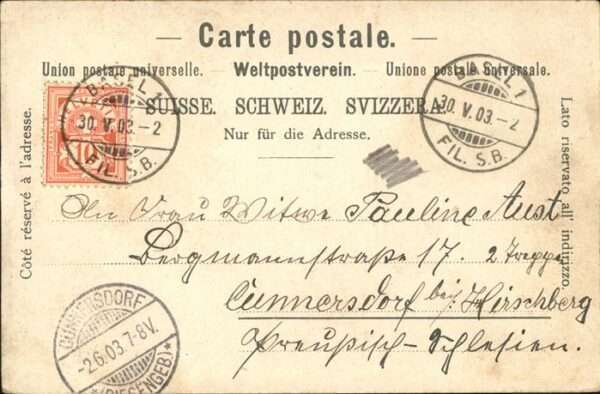 — Carte postale. —
Union postale universelle. — Weltpostverein. — Unione postale universale.
SUISSE. SCHWEIZ. SVIZZERA.
Nur für die Adresse.
Côté réservé à l'adresse.
Lato riservato all' indirizzo.
BASEL 1
30. V. 03. – 2
FIL. S.B.
BASEL 1
30. V. 03. – 2
FIL. S.B.
10
An Frau Witwe Pauline Aust
Bergmannstraße 17. 2 Treppe
Cunnersdorf bei Hirschberg
Preußisch-Schlesien.
CUNNERSDORF
-2.6.03.7-8V.
*(RIESENGEB)*